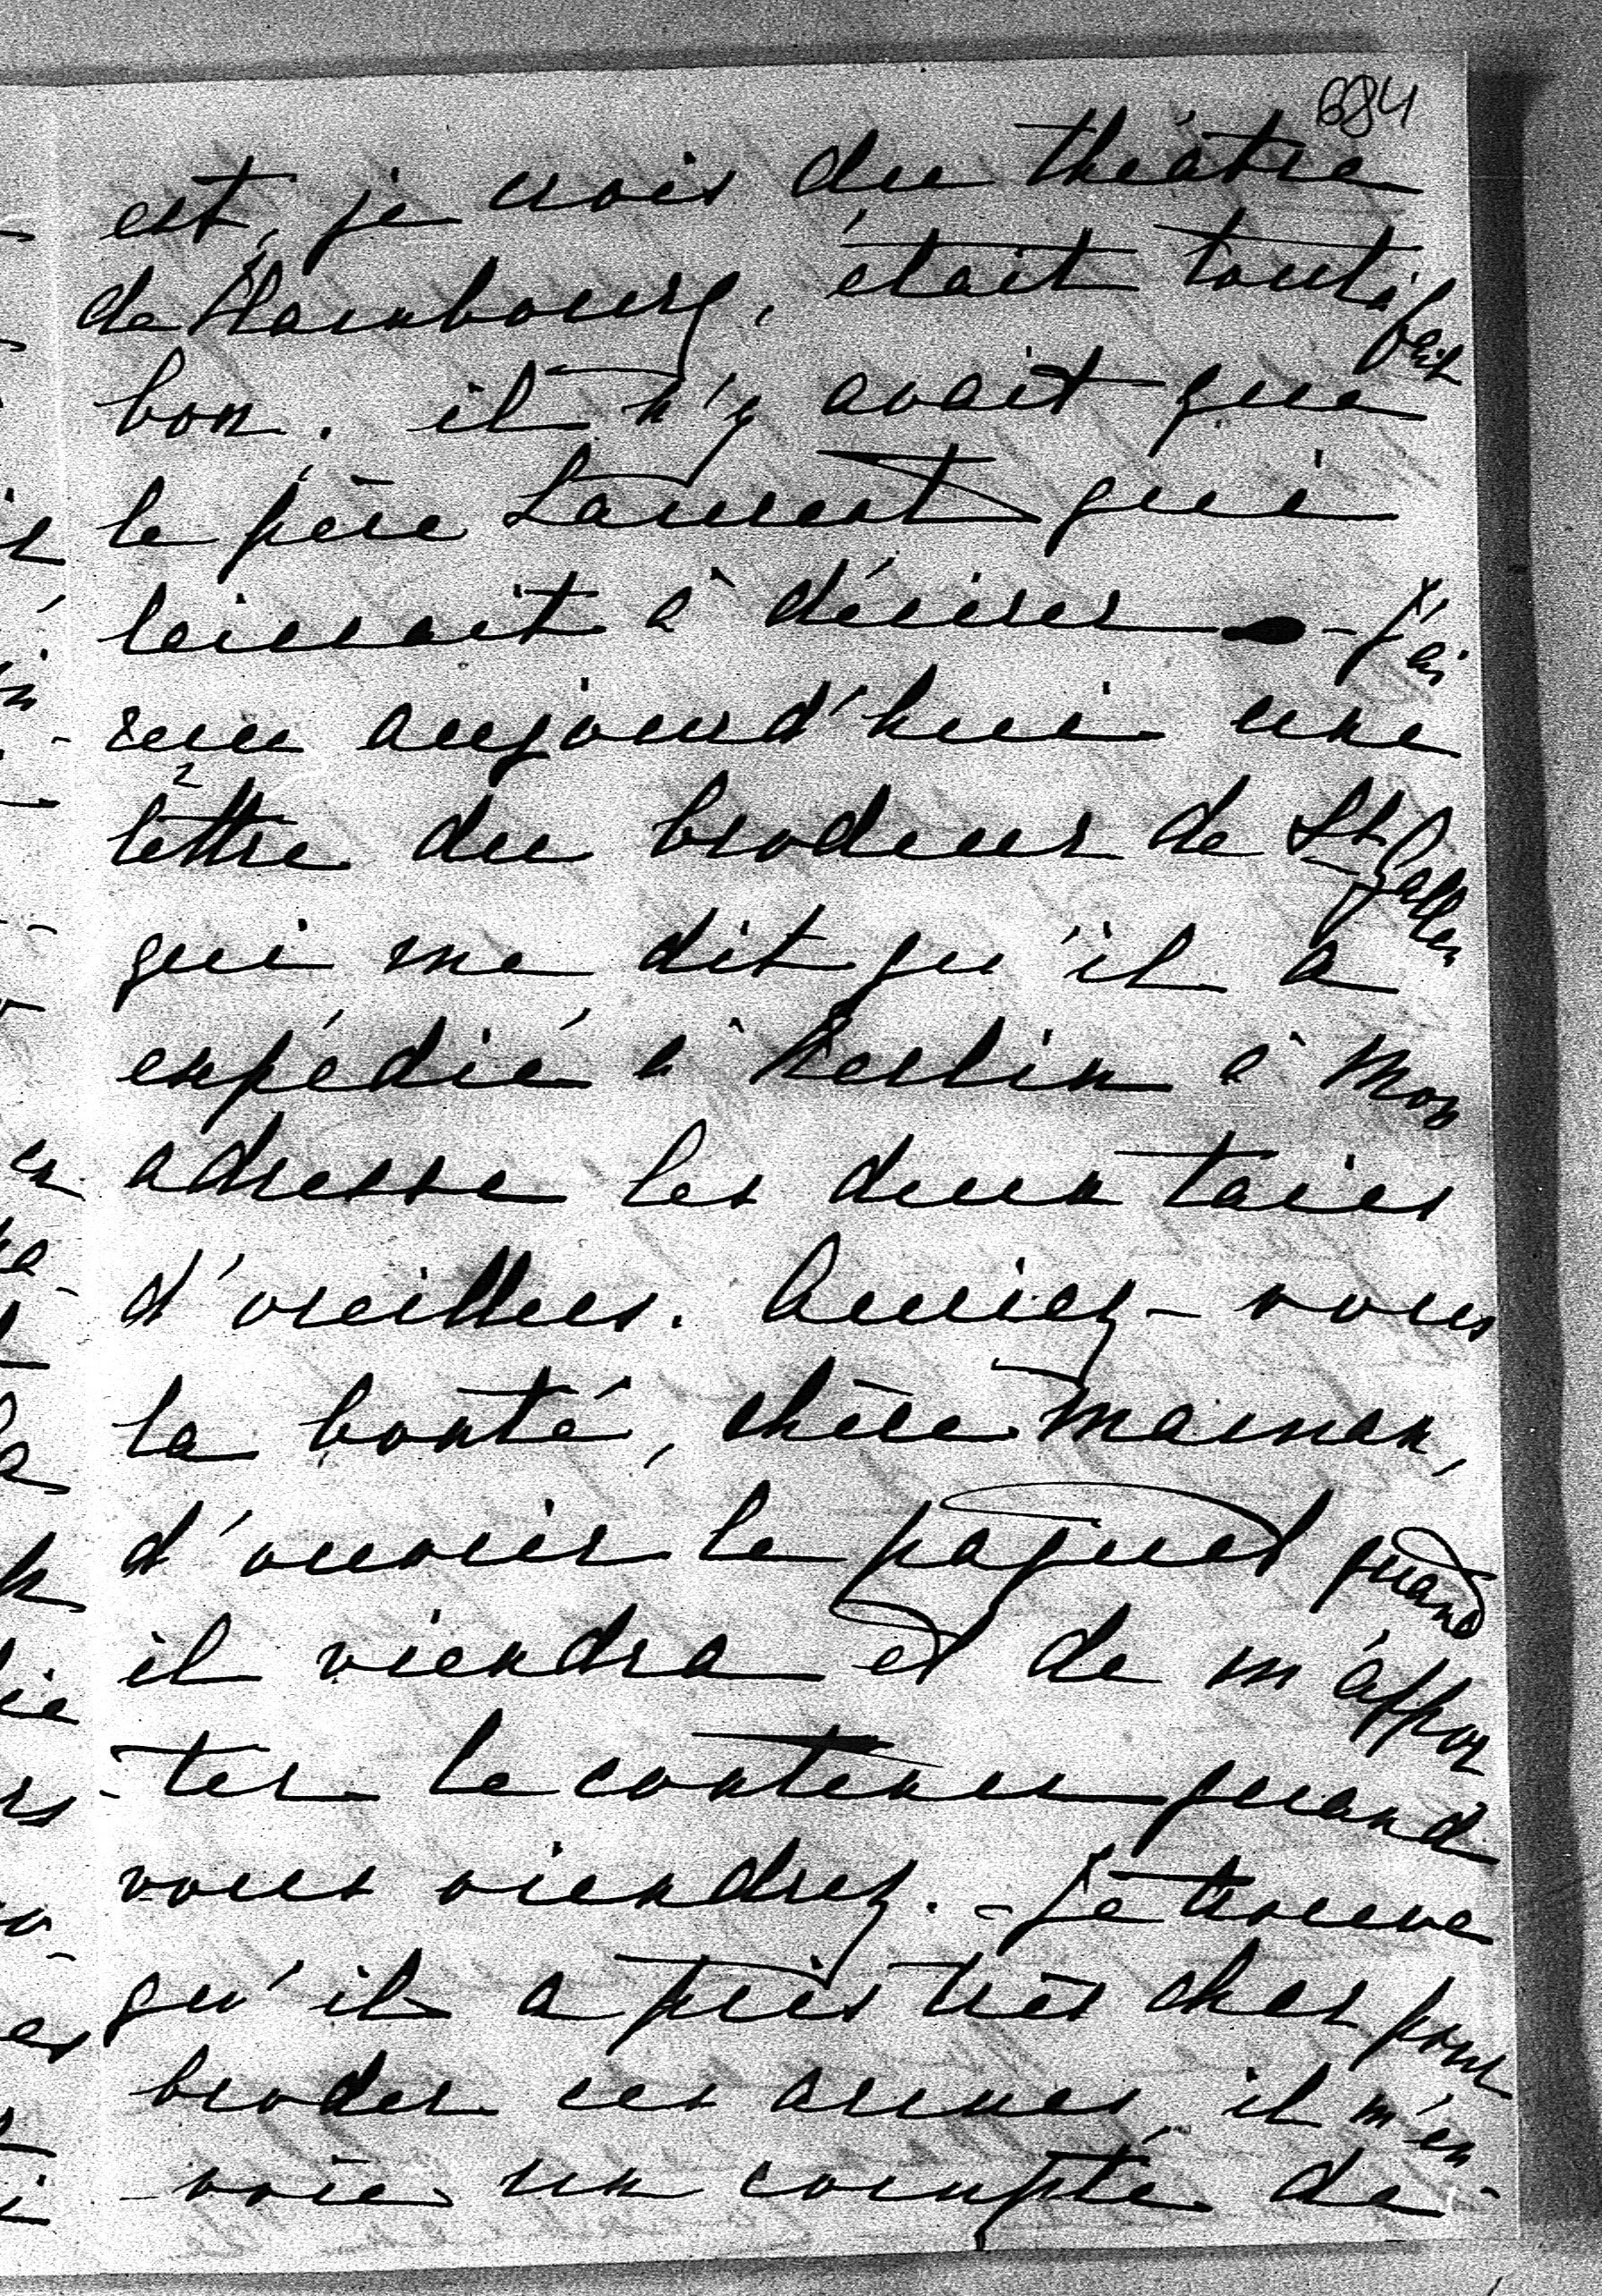 684
est, je crois du théâtre
de Hambourg, était tout à fait
bon. il n'y avait que
le père Laurent qui
laissait à désirer - J'ai
reçu aujourd'hui une
lettre du brodeur de St Gallen
qui me dit qu'il a
expédié à Berlin à mon
adresse les deux taies
d'oreillers. Auriez-vous
la bonté, chère Maman,
d'ouvrir le paquet quand
il viendra et de m'appor
-ter le contenu quand
vous viendrez. - Je trouve
qu'il a pris très cher pour
broder ces armes, il m'en
-voie un compte de